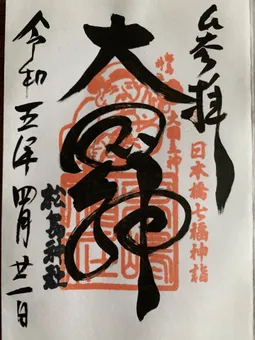 奉拝
日本橋七福神詣
大国神
松島神社
令和五年四月廿一日